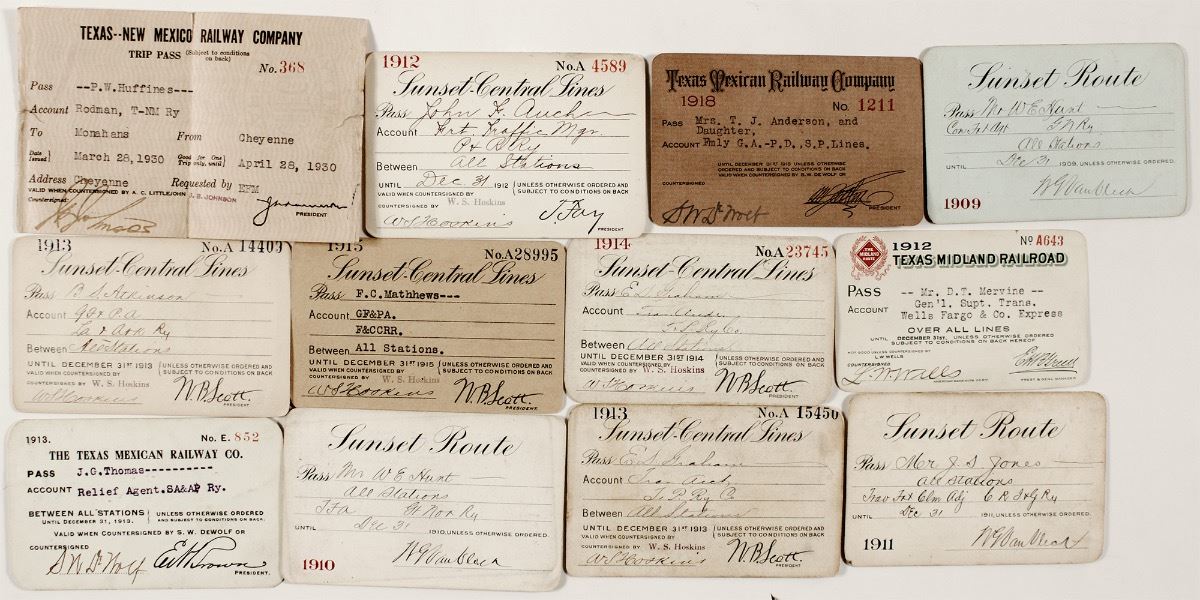 TEXAS--NEW MEXICO RAILWAY COMPANY
TRIP PASS (Subject to conditions on back)
No. 368
Pass --P.W.Huffines---
Account Rodman, T-NM Ry
To Monahans From Cheyenne
Date Issued March 28,1930 Good for One Trip only, until April 28, 1930
Address Cheyenne Requested by EFM
VALID WHEN COUNTERSIGNED BY A. C. LITTLEJOHN J. B. JOHNSON
Countersigned:
PRESIDENT
1912 No.A 4589
Sunset-Central Lines
Pass John F. Aucher
Account Frt Traffic Mgr
Ry
Between All Stations
UNTIL Dec 31 1912 (UNLESS OTHERWISE ORDERED AND SUBJECT TO CONDITIONS ON BACK
VALID WHEN COUNTERSIGNED BY
COUNTERSIGNED BY W. S. Hoskins
W S Hoskins J. Fay
PRESIDENT
Texas Mexican Railway Company
1918 No. 1211
PASS Mrs. T. J. Anderson, and
Daughter,
ACCOUNT Fmly G.A.-P.D., S.P.Lines.
UNTIL DECEMBER 31ST 1918 UNLESS OTHERWISE
ORDERED AND SUBJECT TO CONDITIONS ON BACK
VALID WHEN COUNTERSIGNED BY S. W. DE WOLF OR
COUNTERSIGNED
S W De Wolf
PRESIDENT
Sunset Route
Pass Mr W E Hunt
All Stations
UNTIL Dec 31 1909, UNLESS OTHERWISE ORDERED.
1909 W G Van Vleck
1913 No.A 14403
Sunset-Central Lines
Pass B S Atkinson
Account G F & P A
La & Ark Ry
Between All Stations
UNTIL DECEMBER 31ST 1913 (UNLESS OTHERWISE ORDERED AND SUBJECT TO CONDITIONS ON BACK
VALID WHEN COUNTERSIGNED BY
COUNTERSIGNED BY W. S. Hoskins
W S Hoskins W.B. Scott.
PRESIDENT.
1915 No.A28995
Sunset-Central Lines
Pass F.C.Mathhews---
Account GF&PA.
F&CCRR.
Between All Stations.
UNTIL DECEMBER 31ST 1915 (UNLESS OTHERWISE ORDERED AND SUBJECT TO CONDITIONS ON BACK
VALID WHEN COUNTERSIGNED BY
COUNTERSIGNED BY W. S. Hoskins
W S Hoskins W.B. Scott.
PRESIDENT.
1914 No.A23745
Sunset-Central Lines
Pass E S Graham
Account
Between All Stations
UNTIL DECEMBER 31ST 1914 (UNLESS OTHERWISE ORDERED AND SUBJECT TO CONDITIONS ON BACK
VALID WHEN COUNTERSIGNED BY
COUNTERSIGNED BY W. S. Hoskins
W S Hoskins W.B. Scott.
PRESIDENT.
THE MIDLAND ROUTE
1912 No A643
TEXAS MIDLAND RAILROAD
PASS -- Mr. D.T. Mervine --
ACCOUNT Gen'l. Supt. Trans.
Wells Fargo & Co. Express
OVER ALL LINES
UNTIL DECEMBER 31ST, UNLESS OTHERWISE ORDERED
SUBJECT TO CONDITIONS ON BACK HEREOF
NOT GOOD UNLESS COUNTERSIGNED BY
L W WELLS
L. W. Wells
PRES'T & GEN'L MANAGER
1913. No. E. 852
THE TEXAS MEXICAN RAILWAY CO.
PASS J.G.Thomas----------
ACCOUNT Relief Agent.SA&AP Ry.
BETWEEN ALL STATIONS (UNLESS OTHERWISE ORDERED
UNTIL DECEMBER 31, 1913. AND SUBJECT TO CONDITIONS ON BACK.
VALID WHEN COUNTERSIGNED BY S. W. DEWOLF OR
COUNTERSIGNED
S W De Wolf
PRESIDENT.
Sunset Route
Pass Mr W E Hunt
All Stations
UNTIL Dec 31 1910, UNLESS OTHERWISE ORDERED.
1910 W G Van Vleck
1913 No.A 15450
Sunset-Central Lines
Pass E S Graham
Account
Between All Stations
UNTIL DECEMBER 31ST 1913 (UNLESS OTHERWISE ORDERED AND SUBJECT TO CONDITIONS ON BACK
VALID WHEN COUNTERSIGNED BY
COUNTERSIGNED BY W. S. Hoskins
W S Hoskins W.B. Scott.
PRESIDENT.
Sunset Route
Pass Mr J. S. Jones
All Stations
Trav Frt Clm Adj
UNTIL Dec 31 1911, UNLESS OTHERWISE ORDERED.
1911 W G Van Vleck